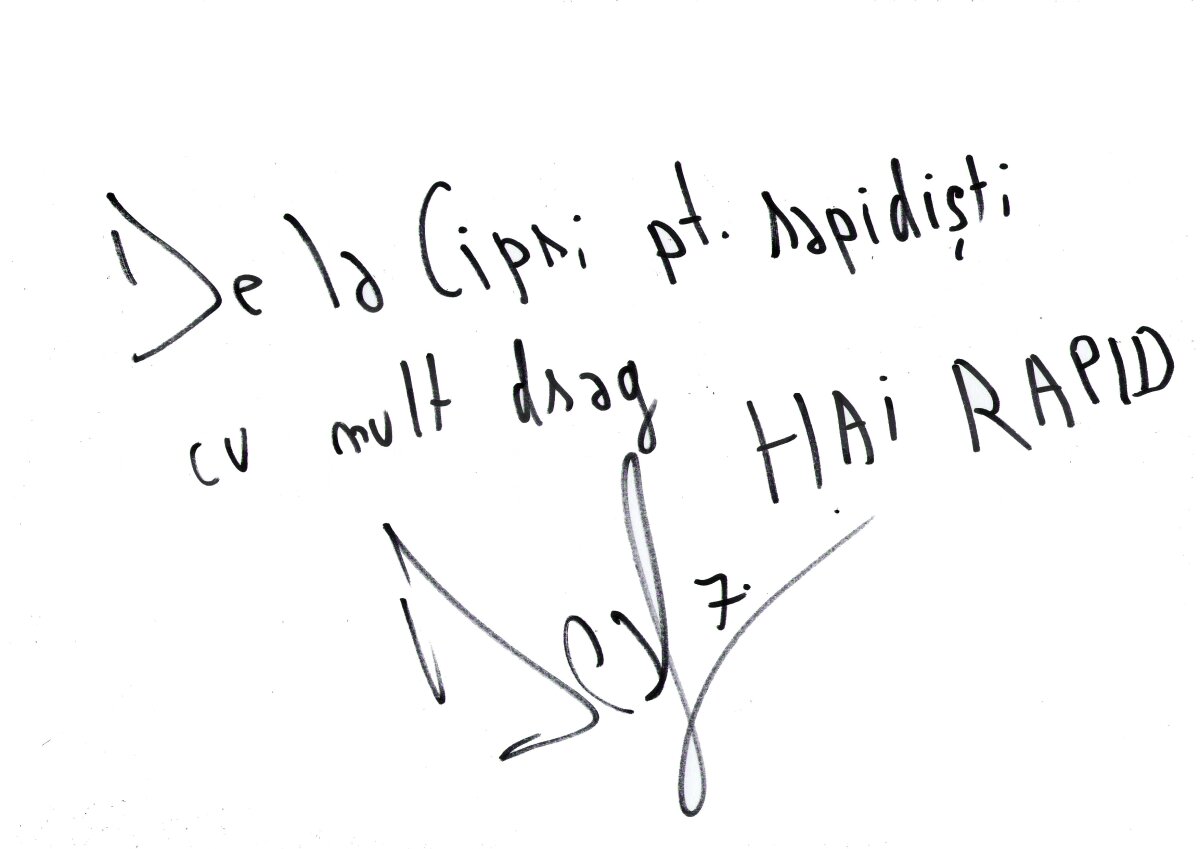 De la Cipri pt. rapidiști
cu mult drag
HAi RAPID
7.